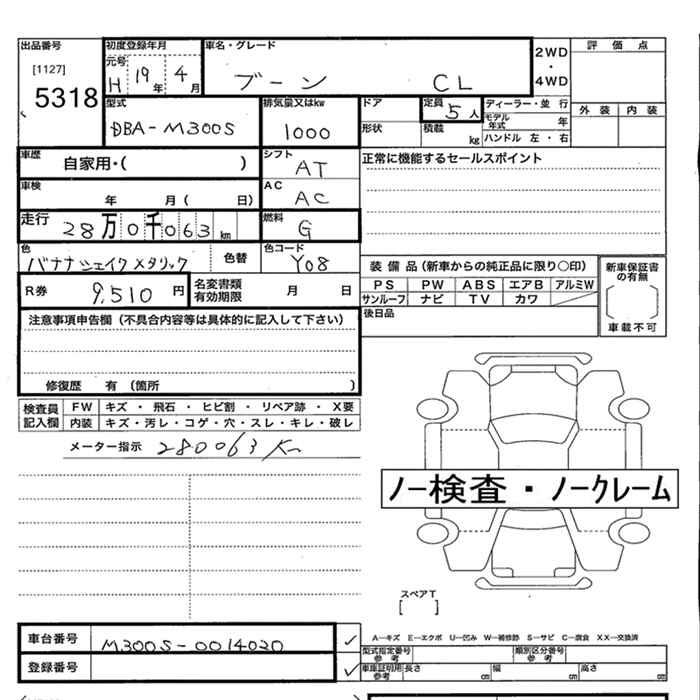 出品番号 初度登録年月 車名・グレード 2WD・4WD 評価点
[1127] 元号
5318 H 19年 4月 ブーン CL
型式 排気量又はkw ドア 定員 5人 ディーラー・並行 外装 内装
DBA-M300S 1000 形状 積載 kg モデル年式 年
ハンドル 左・右
車歴 自家用・( ) シフト AT 正常に機能するセールスポイント
車検 年 月( 日) AC AC
走行 28万0千063km 燃料 G
色 バナナシェイクメタリック 色替 色コード Y08
装備品(新車からの純正品に限り○印) 新車保証書の有無
R券 9,510円 名変書類有効期限 月 日 PS PW ABS エアB アルミW
サンルーフ ナビ TV カワ
注意事項申告欄(不具合内容等は具体的に記入して下さい) 後日品 車載不可
修復歴 有(箇所 )
検査員記入欄 FW キズ・飛石・ヒビ割・リペア跡・X要
内装 キズ・汚レ・コゲ・穴・スレ・キレ・破レ
メーター指示 280063K
ノー検査・ノークレーム
スペアT
[ ]
車台番号 M300S-0014020 A―キズ E―エクボ U―凹み W―補修跡 S―サビ C―腐食 XX―交換済
登録番号 型式指定番号参考 類別区分番号参考
車庫証明用参考 長さ cm 幅 cm 高さ cm